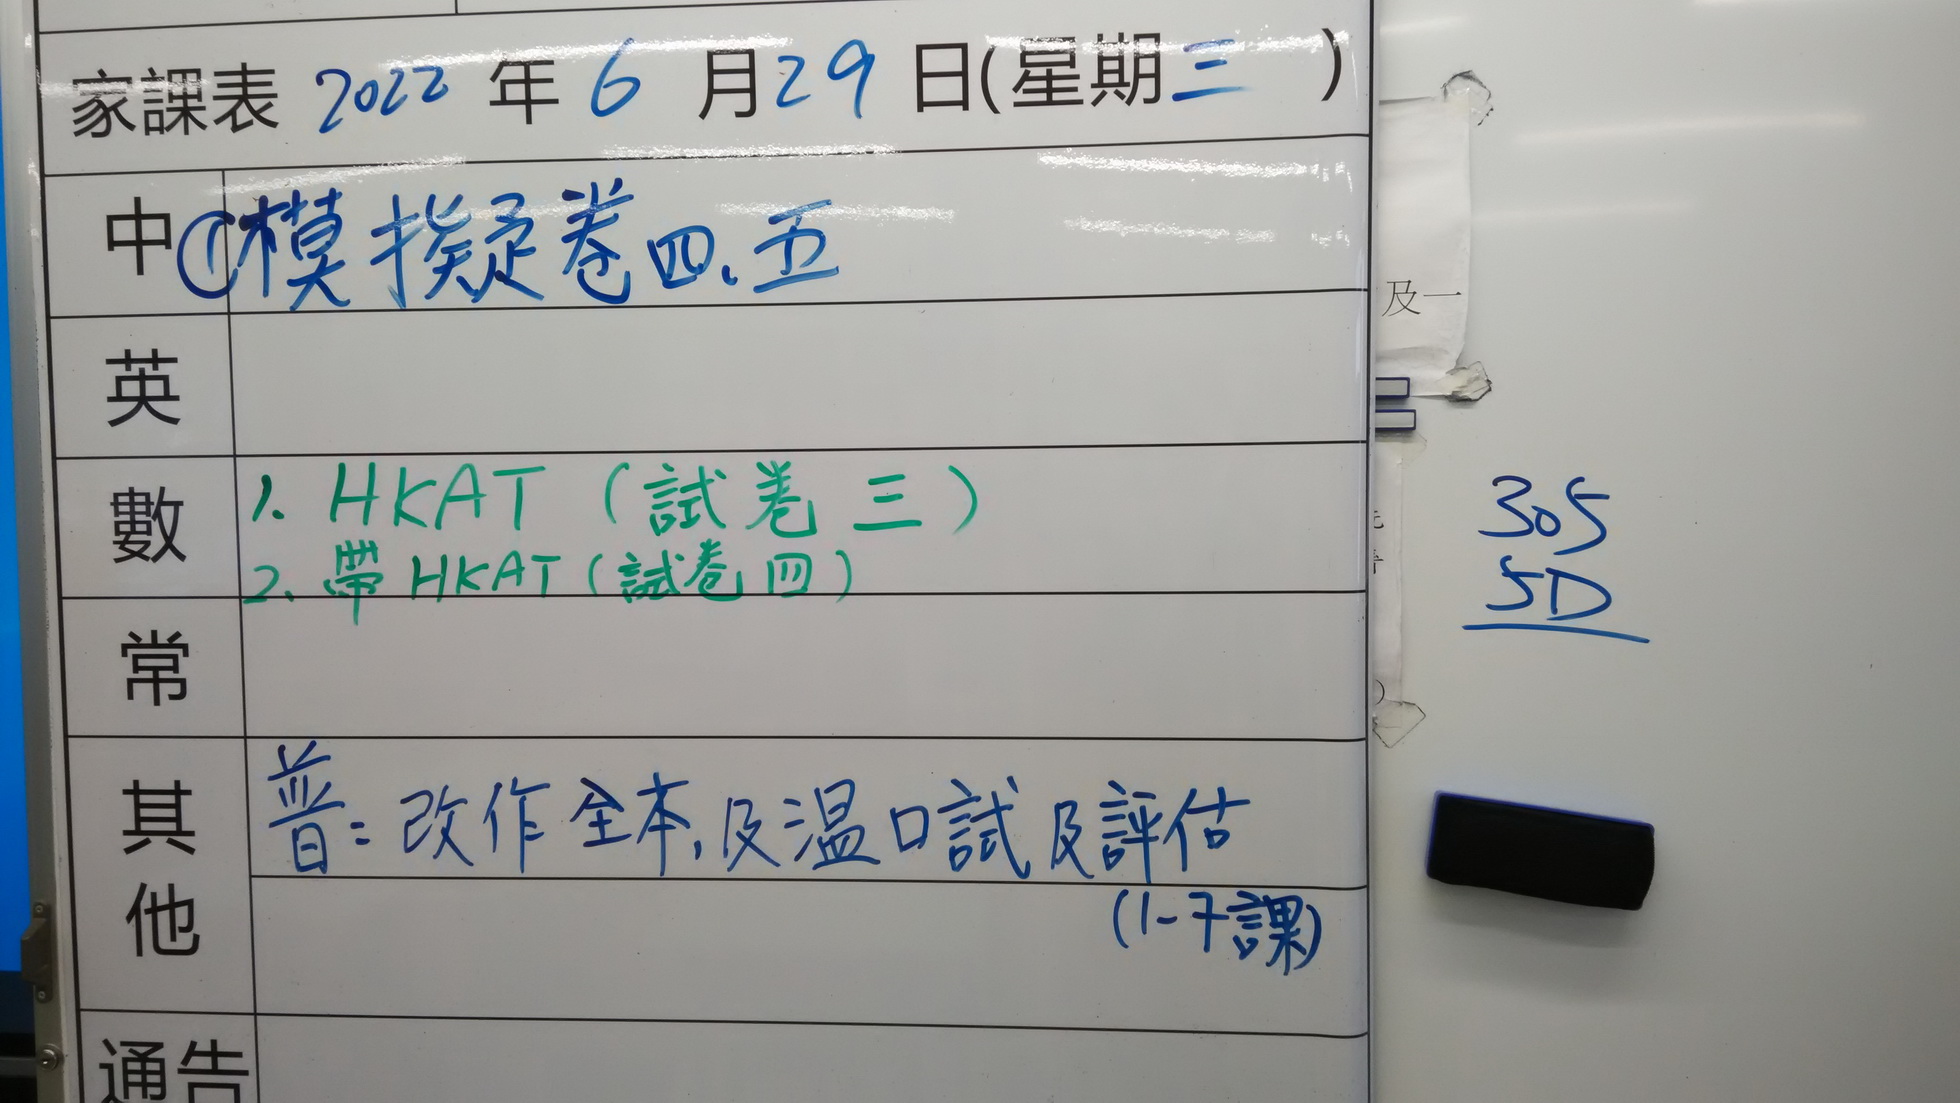 家課表 2022 年 6 月 29 日(星期三 )
中 ①模擬卷四、五
英
數 1. HKAT (試卷三)
2. 帶 HKAT (試卷四)
常
其他 普：改作全本,及温口試及評估
(1-7課)
通告
及一
305
5D